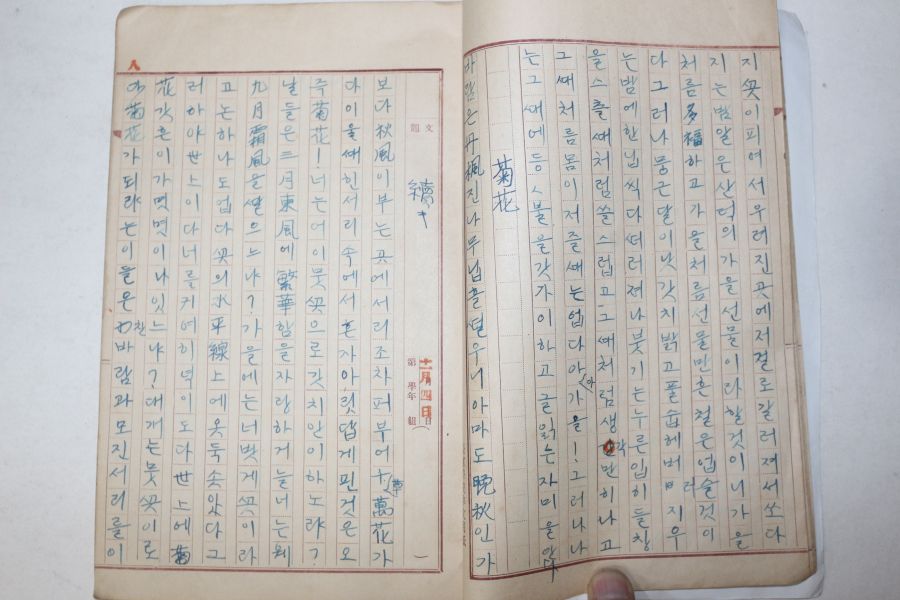 지ᄭᅩᆺ이피여서우러진곳에저절로갈러저서쏘다
지는밤알은산덕의가을선물이라할것이니가을
처름多福하고가을처름선물만흔철은업슬것이
다그러나둥근달이낫갓치밝고풀숩헤버러지우
는밤에한닙식다ᄯᅥ러저나붓기는누른입히들창
을스츨ᄯᅢ처럼쓸스럽고그ᄯᅢ처럼생각만히나고
그ᄯᅢ처름몸이저즐ᄯᅢ는업다아아가을!그러나나
는그ᄯᅢ에등ㅅ불을갓가이하고글읽는자미을안
菊花
바람은丹楓진나무닙흘ᄯᅥᆯ우니아마도晩秋인가
文題
續キ
十二月四日
第 學年 組
보다秋風이부는곳에서리조차퍼부어千草萬花가
다이울ᄯᅢ힌서리속에서혼자아릿답게핀것은오
즉菊花!너는어이뭇ᄭᅩᆺ으로갓치안이하노랴?
날들은三月東風에繁華함을자랑하거늘너는왜
九月霜風을ᄯᅡᆯ으느냐?가을에는너밧게ᄭᅩᆺ이라
고는하나도업다ᄭᅩᆺ의水平線上에웃둑솟앗다그
러하야世上이다너를귀여히녁이도다世上에菊
花갓흔이가몃몃이나잇느냐?대개는뭇ᄭᅩᆺ이로
다菊花가되랴는이들은찬바람과모진서리를이
八